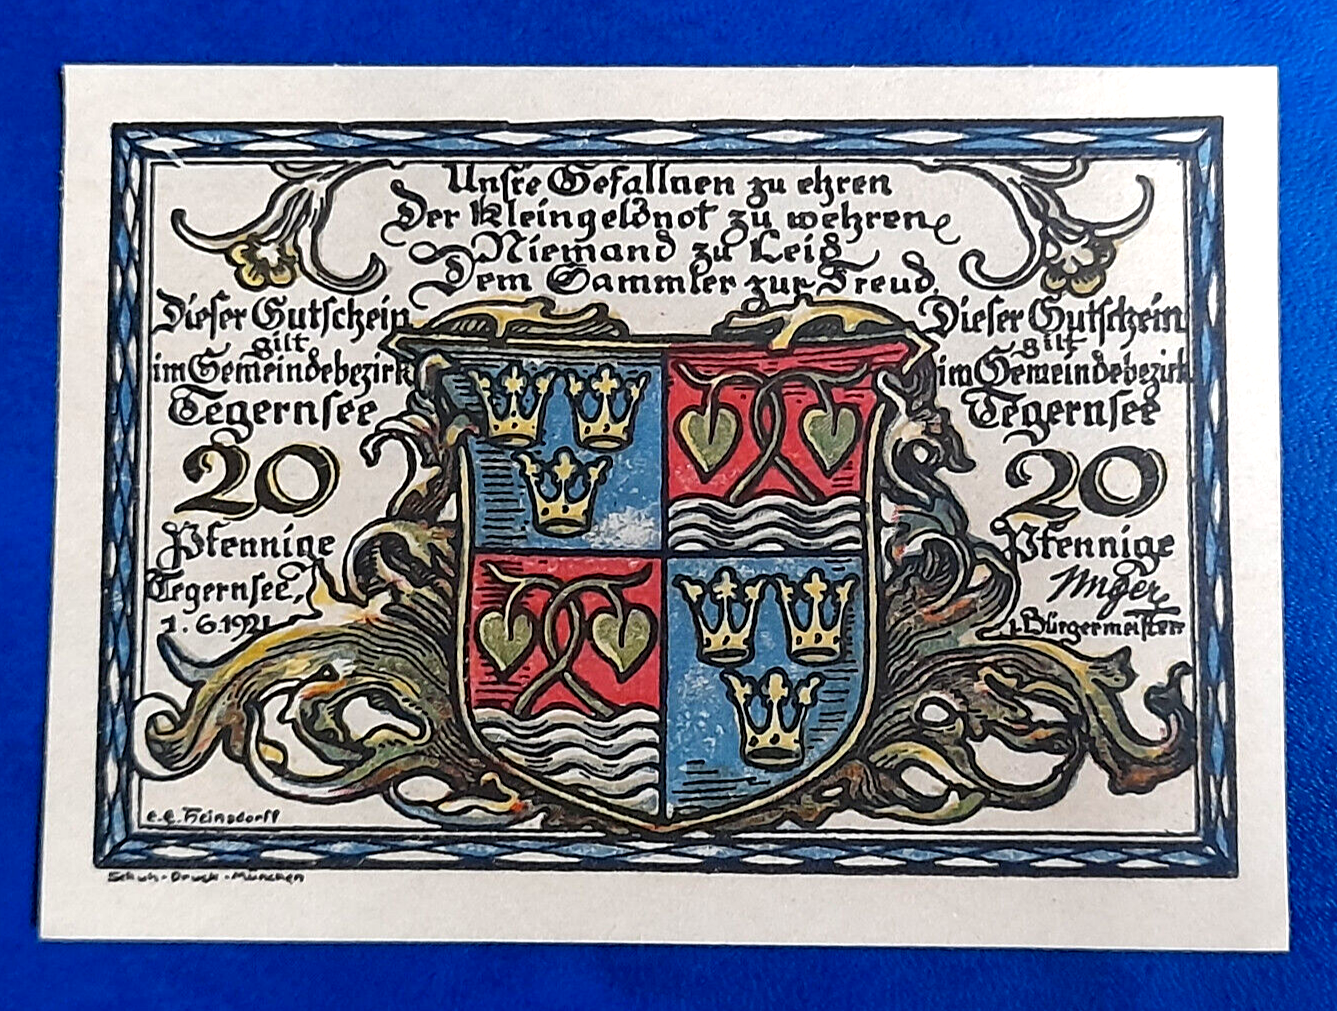 Unsre Gefallnen zu ehren
Der Kleingeldnot zu wehren
Niemand zu Leid
Dem Sammler zur Freud.
Dieser Gutschein
gilt
im Gemeindebezirk
Tegernsee
20
Pfennige
Tegernsee,
1.6.1921
Dieser Gutschein
gilt
im Gemeindebezirk
Tegernsee
20
Pfennige
Unger
1. Bürgermeister
e.C. Heinsdorff
Schuh-Druck-München